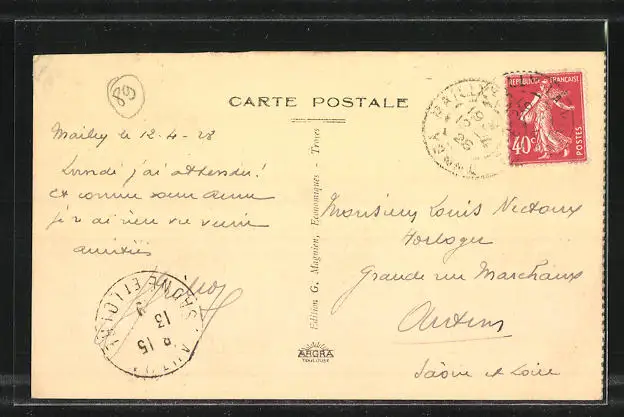 89
CARTE POSTALE
Mailly le 12-4-28
Lundi j'ai attendu!
et comme sœur Anne
je n'ai rien vu venir
amitiés
Edition G. Magnien, Economiques - Troyes
ARGRA
TOULOUSE
REPUBLIQUE FRANÇAISE
40c
POSTES
MAILLY
13
28
Monsieur Louis Nectoux
Horloger
Grande rue Marchaux
Autun
Saône et Loire
SAONE ET LOIRE
8 15
13